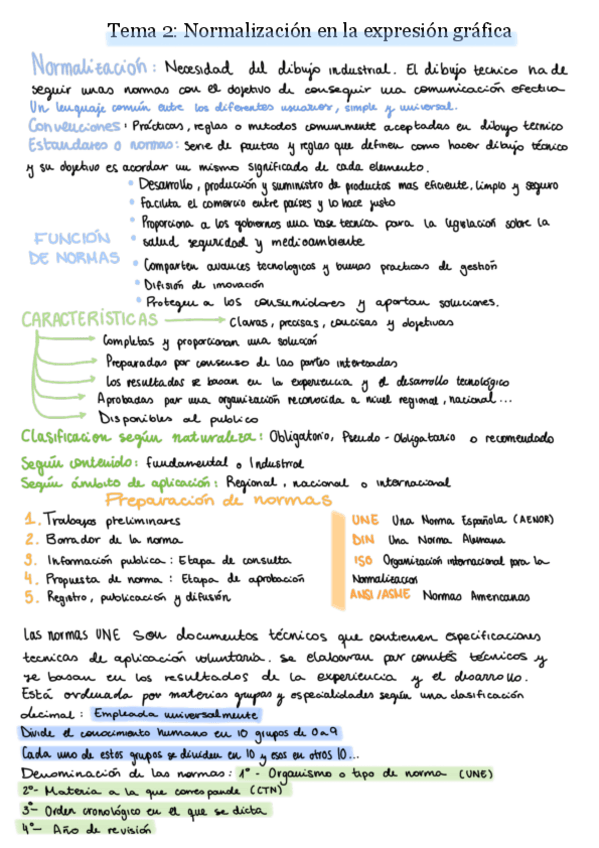 Tema 2: Normalización en la expresión gráfica
Normalización: Necesidad del dibujo industrial. El dibujo tecnico ha de
seguir unas normas con el objetivo de conseguir una comunicación efectiva
Un lenguaje común entre los diferentes usuarios, simple y universal.
Convenciones: Prácticas, reglas o metodos comunmente aceptadas en dibujo tecnico
Estandares o normas: Serie de pautas y reglas que definen como hacer dibujo técnico
y su objetivo es acordar un mismo significado de cada elemento.
FUNCIÓN DE NORMAS
• Desarrollo, producción y suministro de productos mas eficiente, limpio y seguro
• Facilita el comercio entre países y lo hace justo
• Proporciona a los gobiernos una base tecnica para la legislacion sobre la
• salud seguridad y medioambiente
• Comparten avances tecnologicos y buenas practicas de gestión
• Difisión de innovación
• Protegen a los consumidores y aportan soluciones.
CARACTERÍSTICAS → Claras, precisas, concisas y objetivas
Completas y proporcionan una solución
Preparadas por consenso de las partes interesadas
Los resultados se basan en la experiencia y el desarrollo tecnológico
Aprobadas por una organización reconocida a nivel regional, nacional...
Disponibles al publico
Clasificacion según naturaleza: Obligatorio, Pseudo-Obligatario o recomendado
Según contenido: Fundamental o Industrial
Según ámbito de aplicación: Regional, nacional o internacional
Preparación de normas
1. Trabajos preliminares
2. Borrador de la norma
3. Información publica: Etapa de consulta
4. Propuesta de norma: Etapa de aprobación
5. Registro, publicación y difusión
UNE Una Norma Española (AENOR)
DIN Una Norma Alemana
ISO Organizacion internacional para la
Normalizacion
ANSI/ASME Normas Americanas
Las normas UNE son documentos técnicos que contienen especificaciones
tecnicas de aplicación voluntaria. Se elaboran por comités técnicos y
se basan en los resultados de la experiencia y el desarrollo.
Está ordenada por materias grupos y especialidades según una clasificación
decimal: Empleada universalmente
Divide el conocimiento humano en 10 grupos de 0 a 9
Cada uno de estos grupos se dividen en 10 y esos en otros 10...
Denominación de las normas: 1º- Organismo o tipo de norma (UNE)
2º- Materia a la que corresponde (CTN)
3º- Orden cronológico en el que se dicta
4º- Año de revisión